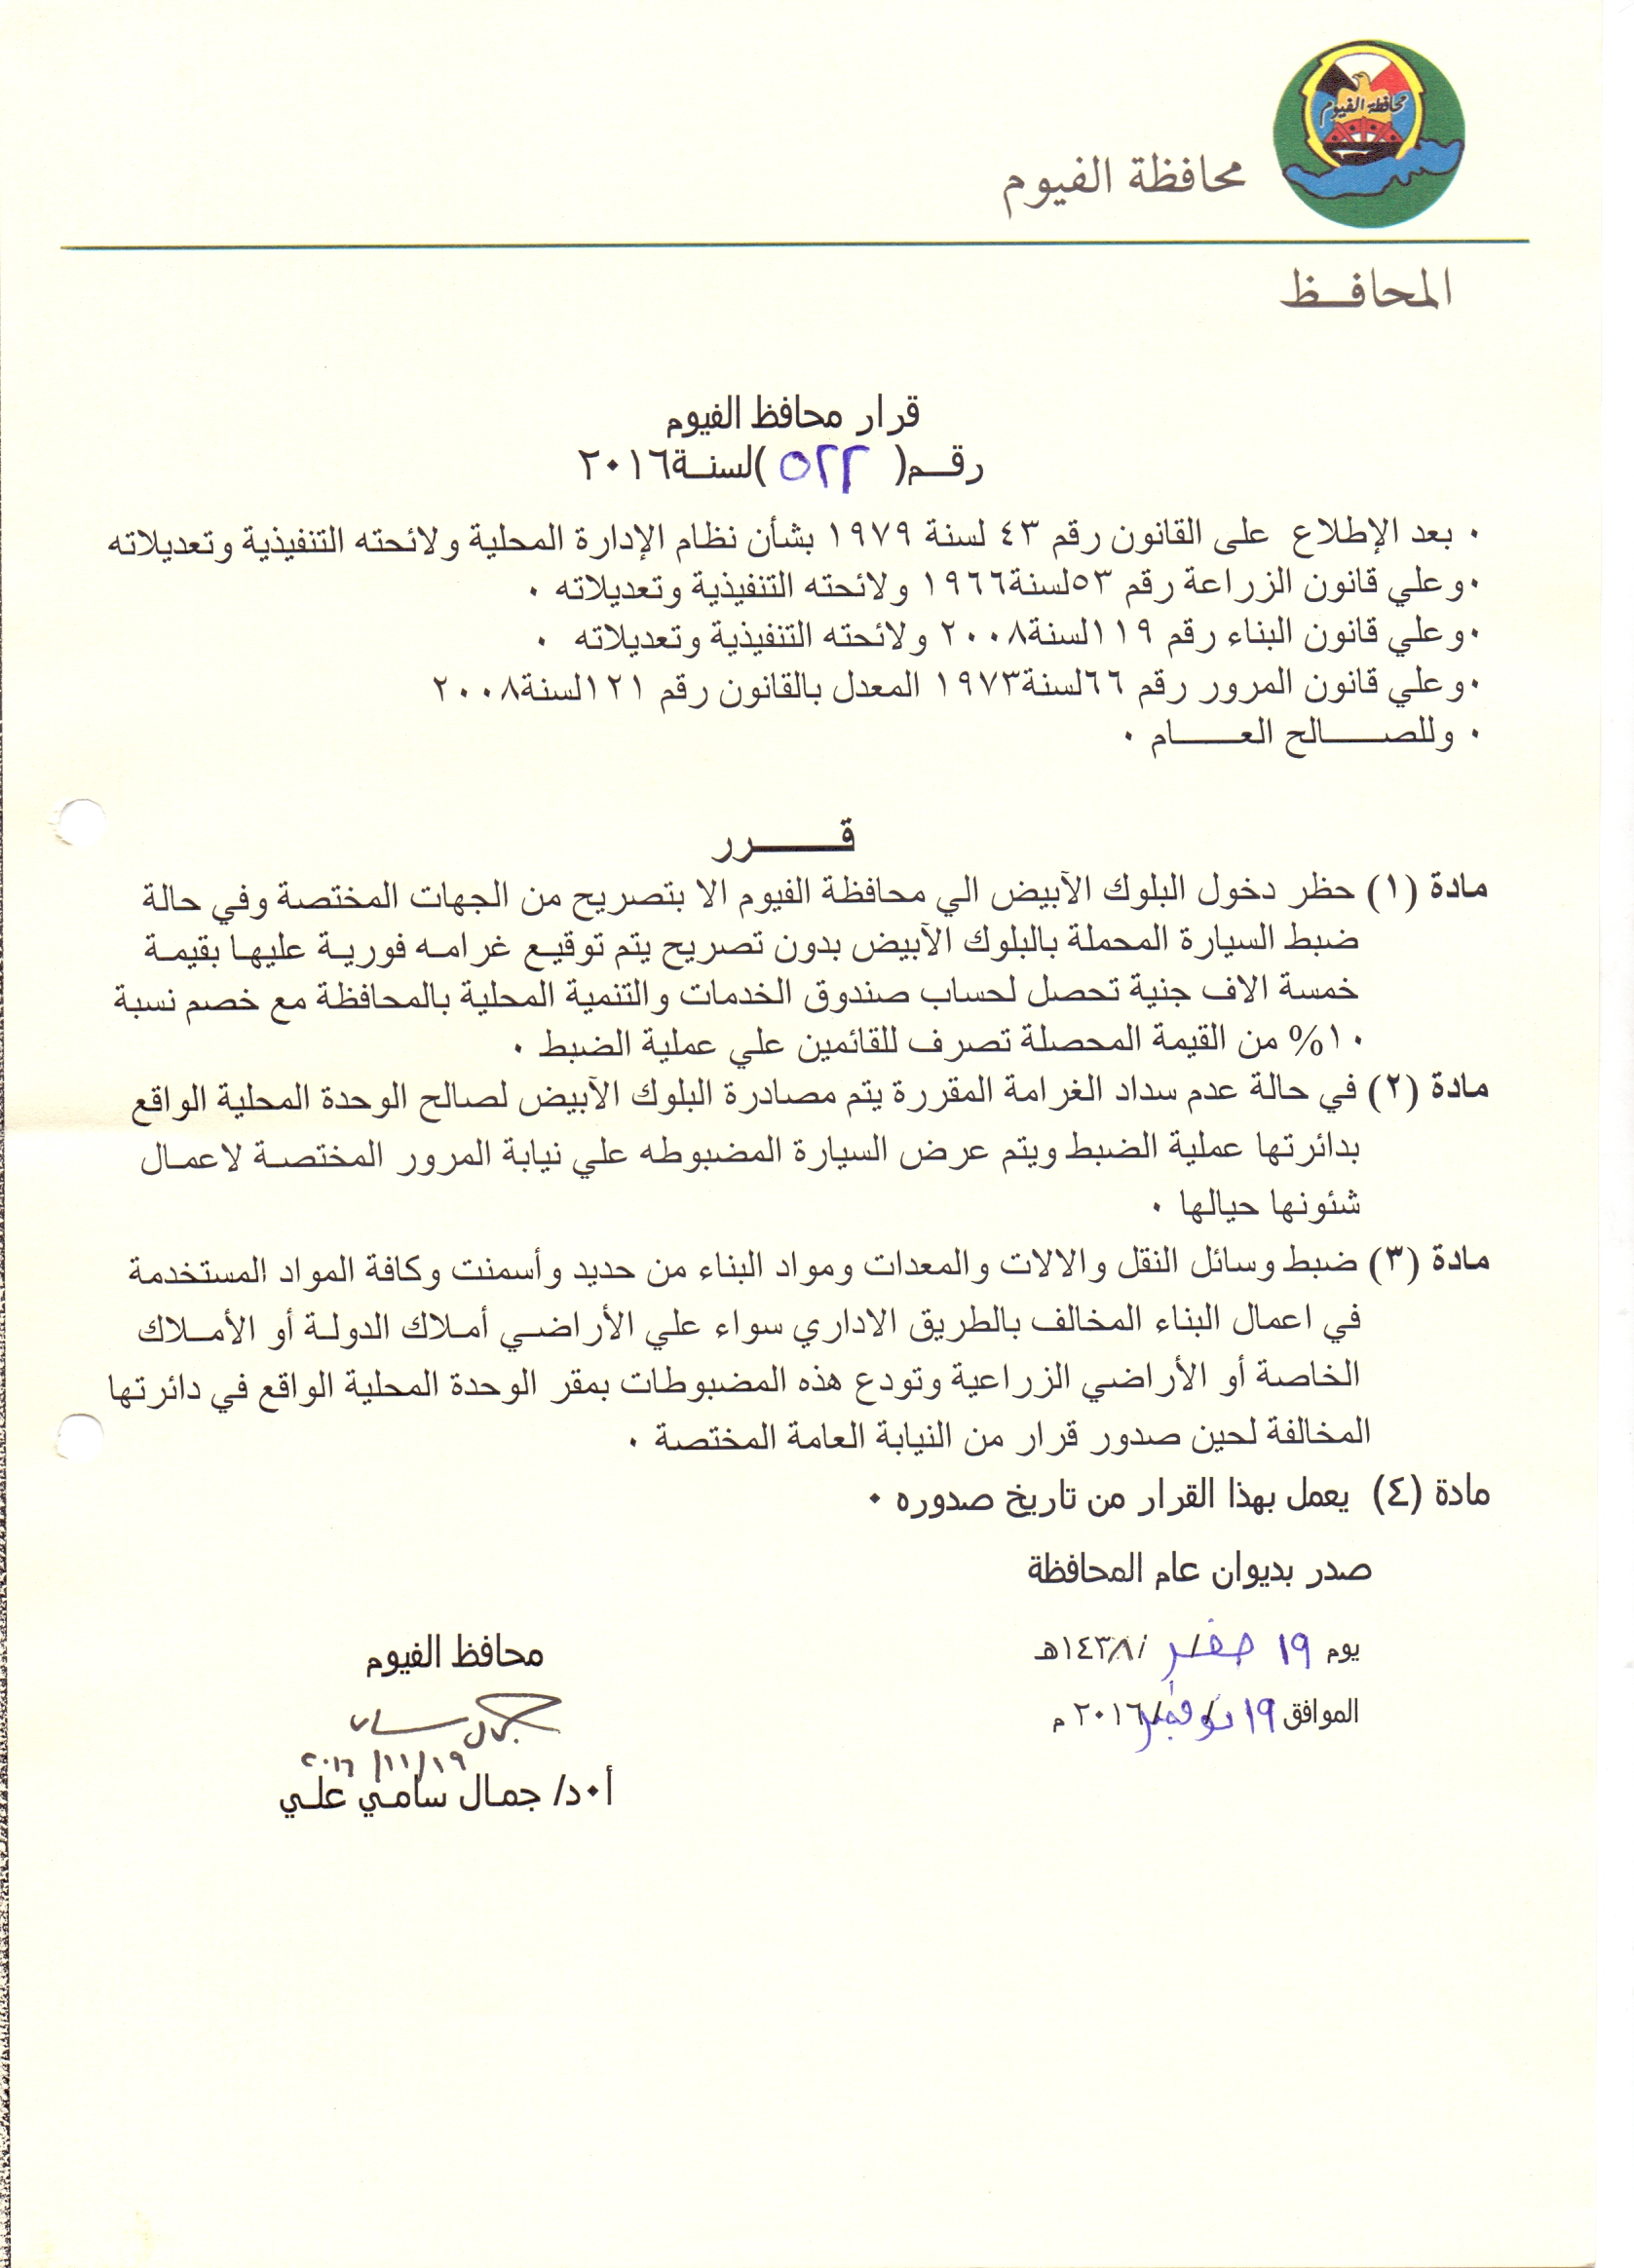 محافظة الفيوم
محافظة الفيوم
المحافـــظ
قرار محافظ الفيوم
رقــم( ٥٢٢ )لسنــة٢٠١٦
٠ بعد الإطلاع على القانون رقم ٤٣ لسنة ١٩٧٩ بشأن نظام الإدارة المحلية ولائحته التنفيذية وتعديلاته
٠وعلي قانون الزراعة رقم ٥٣لسنة١٩٦٦ ولائحته التنفيذية وتعديلاته ٠
٠وعلي قانون البناء رقم ١١٩لسنة٢٠٠٨ ولائحته التنفيذية وتعديلاته ٠
٠وعلي قانون المرور رقم ٦٦لسنة١٩٧٣ المعدل بالقانون رقم ١٢١لسنة٢٠٠٨
٠ وللصــــــالح العــــــام ٠
قـــــــرر
مادة (١) حظر دخول البلوك الآبيض الي محافظة الفيوم الا بتصريح من الجهات المختصة وفي حالة
ضبط السيارة المحملة بالبلوك الآبيض بدون تصريح يتم توقيع غرامه فورية عليها بقيمة
خمسة الاف جنية تحصل لحساب صندوق الخدمات والتنمية المحلية بالمحافظة مع خصم نسبة
١٠% من القيمة المحصلة تصرف للقائمين علي عملية الضبط ٠
مادة (٢) في حالة عدم سداد الغرامة المقررة يتم مصادرة البلوك الآبيض لصالح الوحدة المحلية الواقع
بدائرتها عملية الضبط ويتم عرض السيارة المضبوطه علي نيابة المرور المختصة لاعمال
شئونها حيالها ٠
مادة (٣) ضبط وسائل النقل والالات والمعدات ومواد البناء من حديد وأسمنت وكافة المواد المستخدمة
في اعمال البناء المخالف بالطريق الاداري سواء علي الأراضي أملاك الدولة أو الأملاك
الخاصة أو الأراضي الزراعية وتودع هذه المضبوطات بمقر الوحدة المحلية الواقع في دائرتها
المخالفة لحين صدور قرار من النيابة العامة المختصة ٠
مادة (٤) يعمل بهذا القرار من تاريخ صدوره ٠
صدر بديوان عام المحافظة
يوم ١٩ صفر /١٤٣٨هـ
الموافق ١٩ نوفمبر/٢٠١٦ م
محافظ الفيوم
جمال سامي
١٩/١١/٢٠١٦
أ٠د/ جمال سامي علي